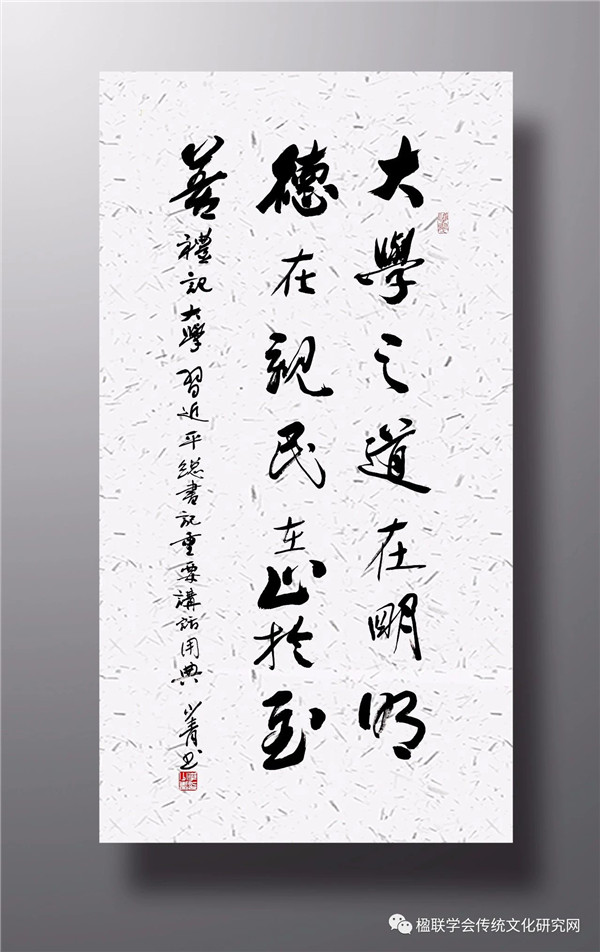 大學之道在明明
德在親民在止於至
善 禮記大學 習近平總書記重要講話用典 少青书
楹联学会传统文化研究网